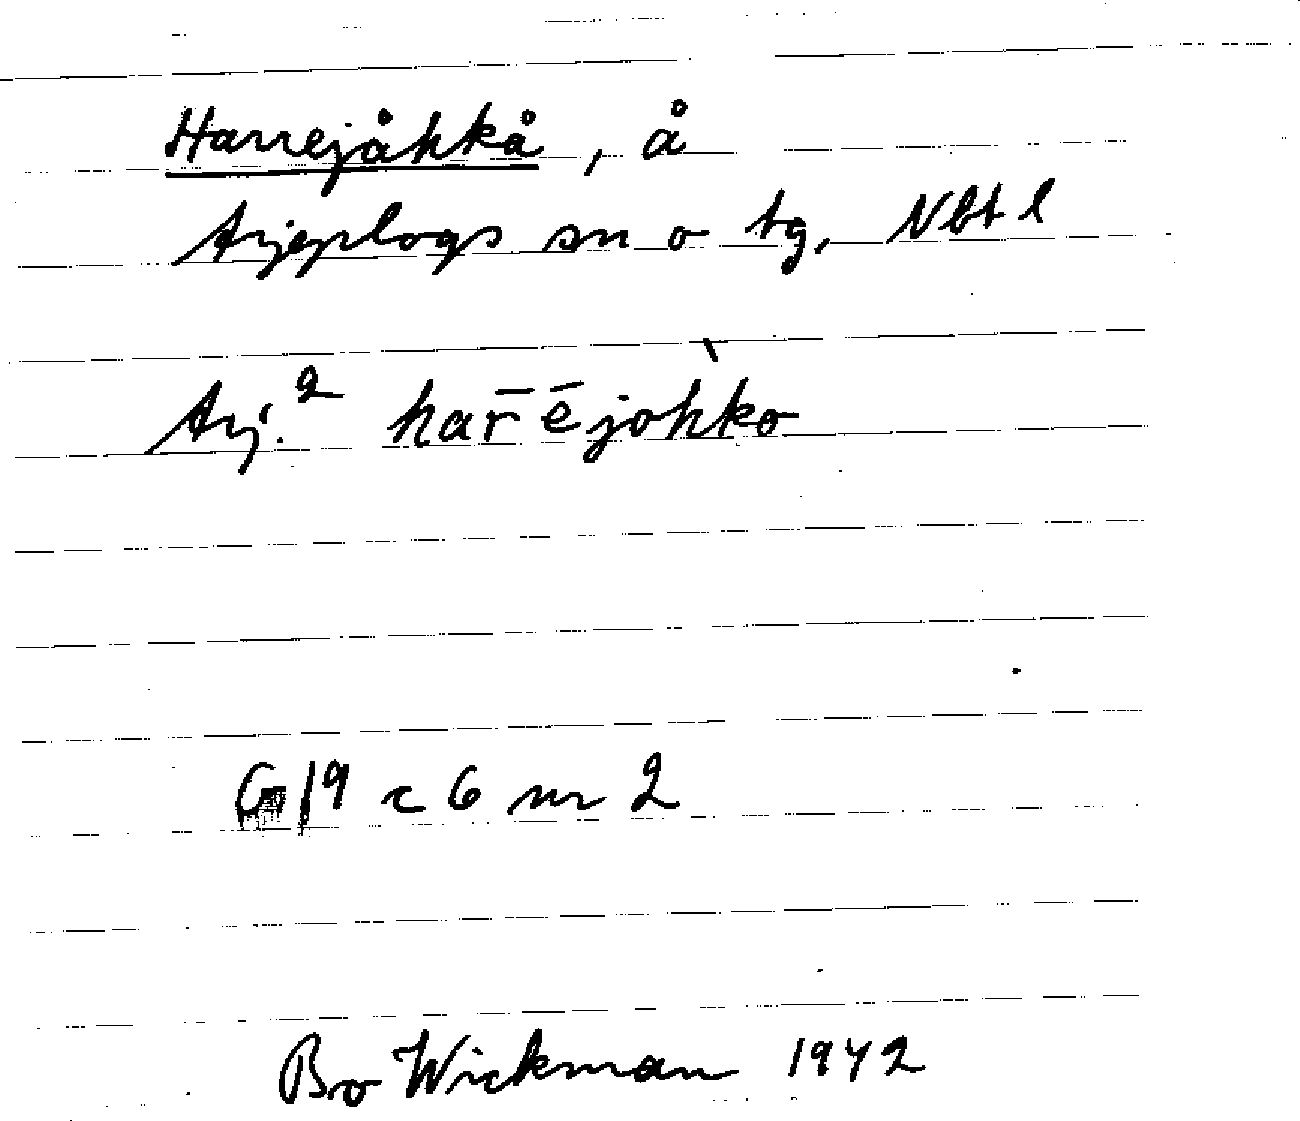 Harrejåhkå, å
Arjeplogs sn o tg, Nbt l
Arj.² har̄ējoh̀ko
G 19 c 6 nr 2
Bo Wickman 1942